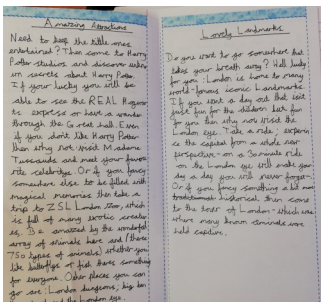 Amazing Attractions
Need to keep the little ones
entertained? Then come to Harry
Potter studios and discover
un secrets about Harry Potter.
If your lucky you will be
able to see the REAL Hogwar
ts express or have a wander
through the Great Hall. Even
if you don't like Harry Potter
then why not visit Madame
Tussauds and meet your favou
rite celebrity. Or if you fancy
somewhere else to be filled with
magical memories then take a
trip to ZSL London Zoo, which
is full of many exotic creatur
es. Be amazed by the wonderful
array of animals here and (there
750 types of animals) whether you
like butterflys or fish theres something
for everyone. Other places you can
go are: London dungeons; big ben
and the London eye.
Lovely Landmarks
Do you want to go somewhere that
takes your breath away? Well lucky
for you: London is home to many
world-famous iconic Landmarks.
If you want a day out that isn't
just fun for the children but fun
for you then why not visit the
London eye. Take a ride; experien
ce the capital from a whole new
perspective - on a 30 minute ride
on the London eye will make your
day a day you will never forget.
Or if you fancy something a bit more
traditional historical then come
to the tower of London - which was
where many known criminals were
held captive.